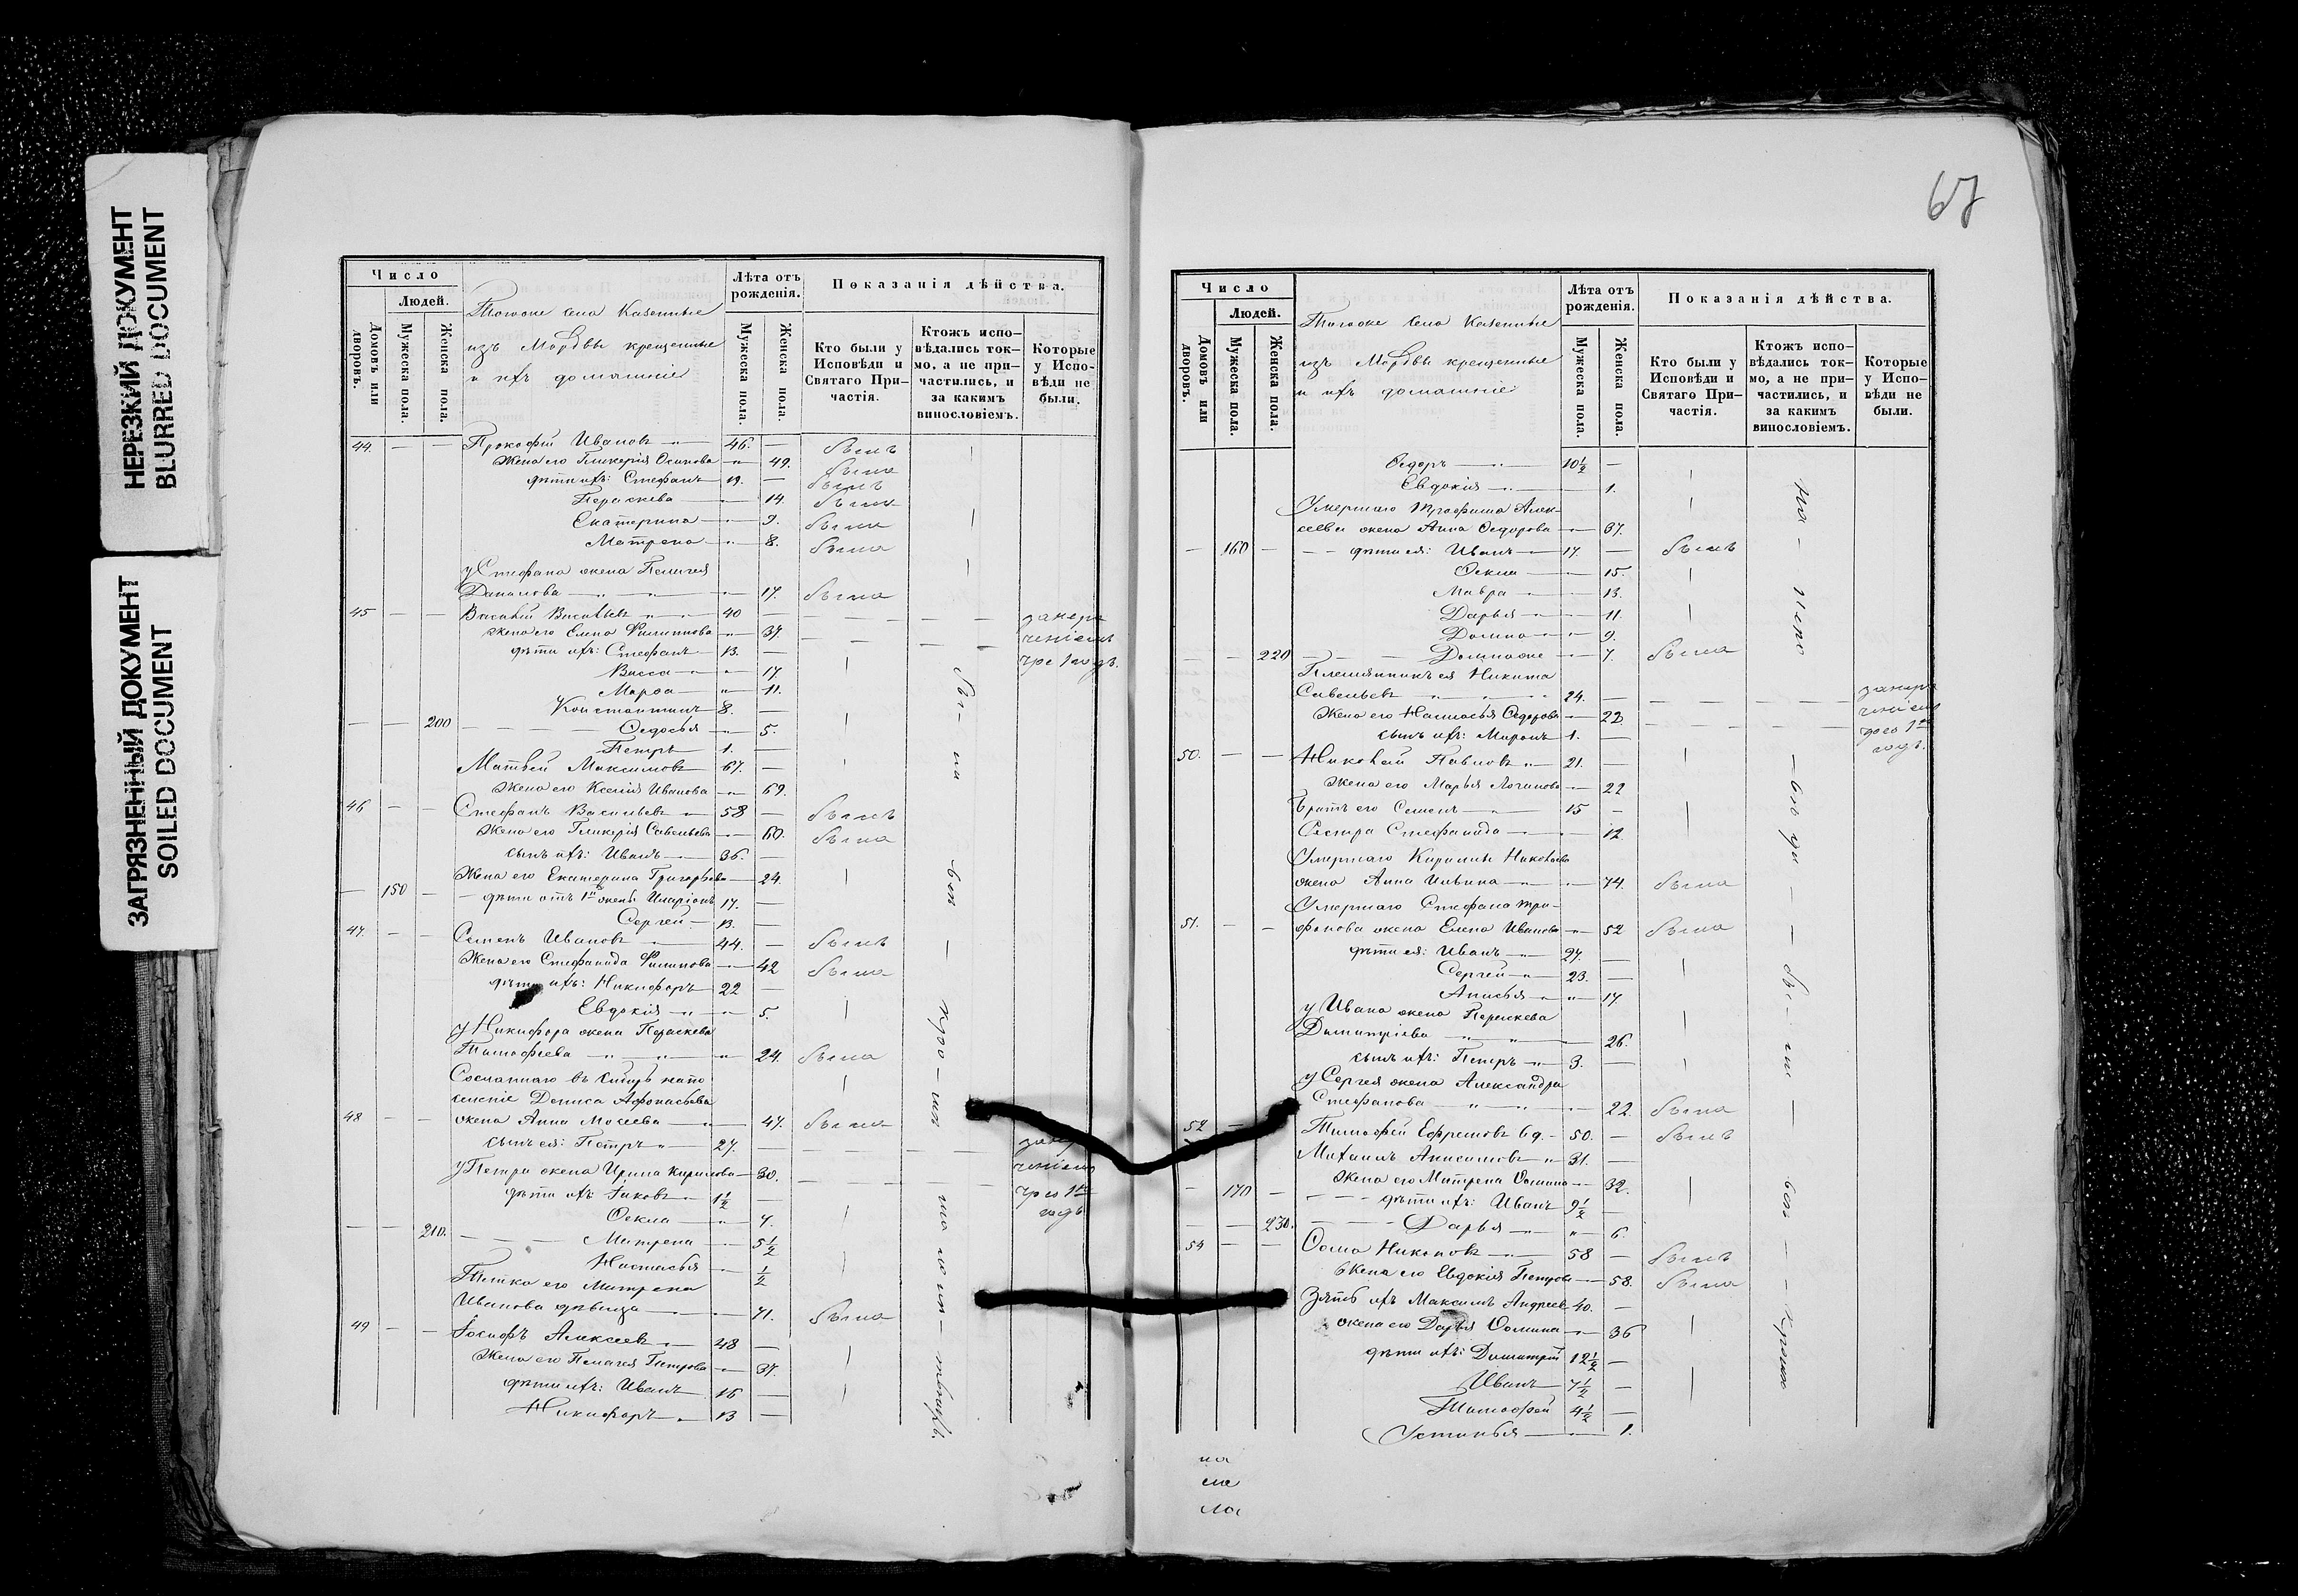 НЕРЕЗКИЙ ДОКУМЕНТ
BLURRED DOCUMENT
ЗАГРЯЗНЕННЫЙ ДОКУМЕНТ
SOILED DOCUMENT
Число
Людей.
Домовъ или дворовъ.
Мужеска пола.
Женска пола.
Тогоже села Казенные
изъ Мордвы крещенные
и ихъ домашніе
Лѣта отъ рожденія.
Мужеска пола.
Женска пола.
Показанія дѣйства.
Кто были у Исповѣди и Святаго Причастія.
Ктожъ исповѣдались токмо, а не причастились, и за какимъ винословіемъ.
Которые у Исповѣди не были.
44. — — Прокофій Ивановъ 46. — былъ
Жена его Гликерія Осипова 49. была
дѣти ихъ: Стефанъ 19. — былъ
Параскева 14. была
Екатерина 9. была
Матрена 8. была
у Стефана жена Пелагея
Данилова 17. была
45 — — Василій Васильевъ 40 —
жена его Елена Филиппова 37.
дѣти ихъ: Стефанъ 13. —
Васса 17.
Марфа 11.
Константинъ 8. —
— — 200 Федосья 5.
Петръ 1. —
Матвей Максимовъ 67. —
жена его Ксенія Иванова 69.
46 — — Стефанъ Васильевъ 58 — былъ
Жена его Гликерія Савельева 60. была
сынъ ихъ: Иванъ 36. —
Жена его Екатерина Григорьева 24.
— 150 — дѣти отъ 1й жены Иларіонъ 17. —
Сергей 13. —
47. — — Семенъ Ивановъ 44. — былъ
Жена его Стефанида Филипова 42 была
дѣти ихъ: Никифоръ 22 —
Евдокія 5.
у Никифора жена Параскева
Тимофеева 24. была
Сосланнаго въ Сибирь на по
селеніе Дениса Афонасьева
48 — — жена Анна Мосеева 47. была
сынъ ея: Петръ 27. —
у Петра жена Ирина Кирилова 30.
дѣти ихъ: Іаковъ 1½ —
Фекла 7.
— — 210. Матрена 5½
Настасья ½
Тетка его Матрена
Иванова дѣвица 71. была
49 — — Іосифъ Алексеевъ 48 —
Жена его Пелагея Петрова 37.
дѣти ихъ: Иванъ 16 —
Никифоръ 13 —
67
Число
Людей.
Домовъ или дворовъ.
Мужеска пола.
Женска пола.
Тогоже села Казенные
изъ Мордвы крещенные
и ихъ домашніе
Лѣта отъ рожденія.
Мужеска пола.
Женска пола.
Показанія дѣйства.
Кто были у Исповѣди и Святаго Причастія.
Ктожъ исповѣдались токмо, а не причастились, и за какимъ винословіемъ.
Которые у Исповѣди не были.
Федоръ 10½ —
Евдокія 1.
Умершаго Трофима Алек-
сеева жена Анна Федорова 37.
— 160 — дѣти ея: Иванъ 17. — былъ
Фекла 15.
Мавра 13.
Дарья 11.
Домна 9.
— — 220 Домнаже 7. была
Племянникъ ея Никита
Савельевъ 24. —
Жена его Настасья Федорова 22
сынъ ихъ: Миронъ 1. —
50. — — Николай Павловъ 21. —
Жена его Марья Логинова 22
Братъ его Семенъ 15 —
Сестра Стефанида 12
Умершаго Кирилы Николаева
жена Анна Ильина 74. была
Умершаго Стефана Три-
51. — — фонова жена Елена Иванова 52 была
дѣти ея: Иванъ 27. —
Сергей 23. —
Анисья 17
у Ивана жена Параскева
Димитріева 26.
сынъ ихъ: Петръ 3. —
у Сергея жена Александра
Стефанова 22. была
52 — Тимофей Ефремовъ вд. 50. — былъ
Михаилъ Анисимовъ 31. —
Жена его Матрена Фомина 32.
— 170 — дѣти ихъ: Иванъ 9½ —
— — 230. Дарья 6.
54 — — Фома Никоновъ 58 — былъ
Жена его Евдокія Петрова 58. была
Зять ихъ Максимъ Андреев 40. —
жена его Дарья Фомина 36
дѣти ихъ: Димитрій 12½ —
Иванъ 7½ —
Тимофей 4½ —
Устинья 1.